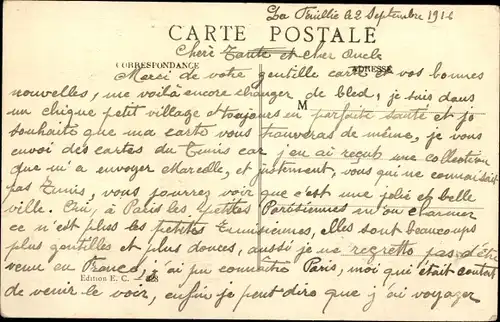 La Feuillie le 2 Septembre 1916
CARTE POSTALE
Chère Tante et Cher Oncle
CORRESPONDANCE
ADRESSE
Merci de votre gentille carte et vos bonnes
nouvelles, me voilà encore changer de bled, je suis dans
M
un chique petit village et toujours en parfaite santé et je
souhaite que ma carte vous trouveras de même, je vous
envoi des cartes du Tunis car j'en ai reçus une collection
que m'a envoyer Marcelle, et justement, vous qui ne connaissait
pas Tunis, vous pourrez voir que c'est une jolie et belle
ville. Oui, à Paris les petites Parisiennes m'on charmer
ce n'est plus les petites Tunisiennes, elles sont beaucoups
plus gentilles et plus douces, aussi je ne regrette pas d'être
venu en France, j'ai pu connaître Paris, moi qui était content
Edition E. C.
de venir le voir, enfin je peut dire que j'ai voyager